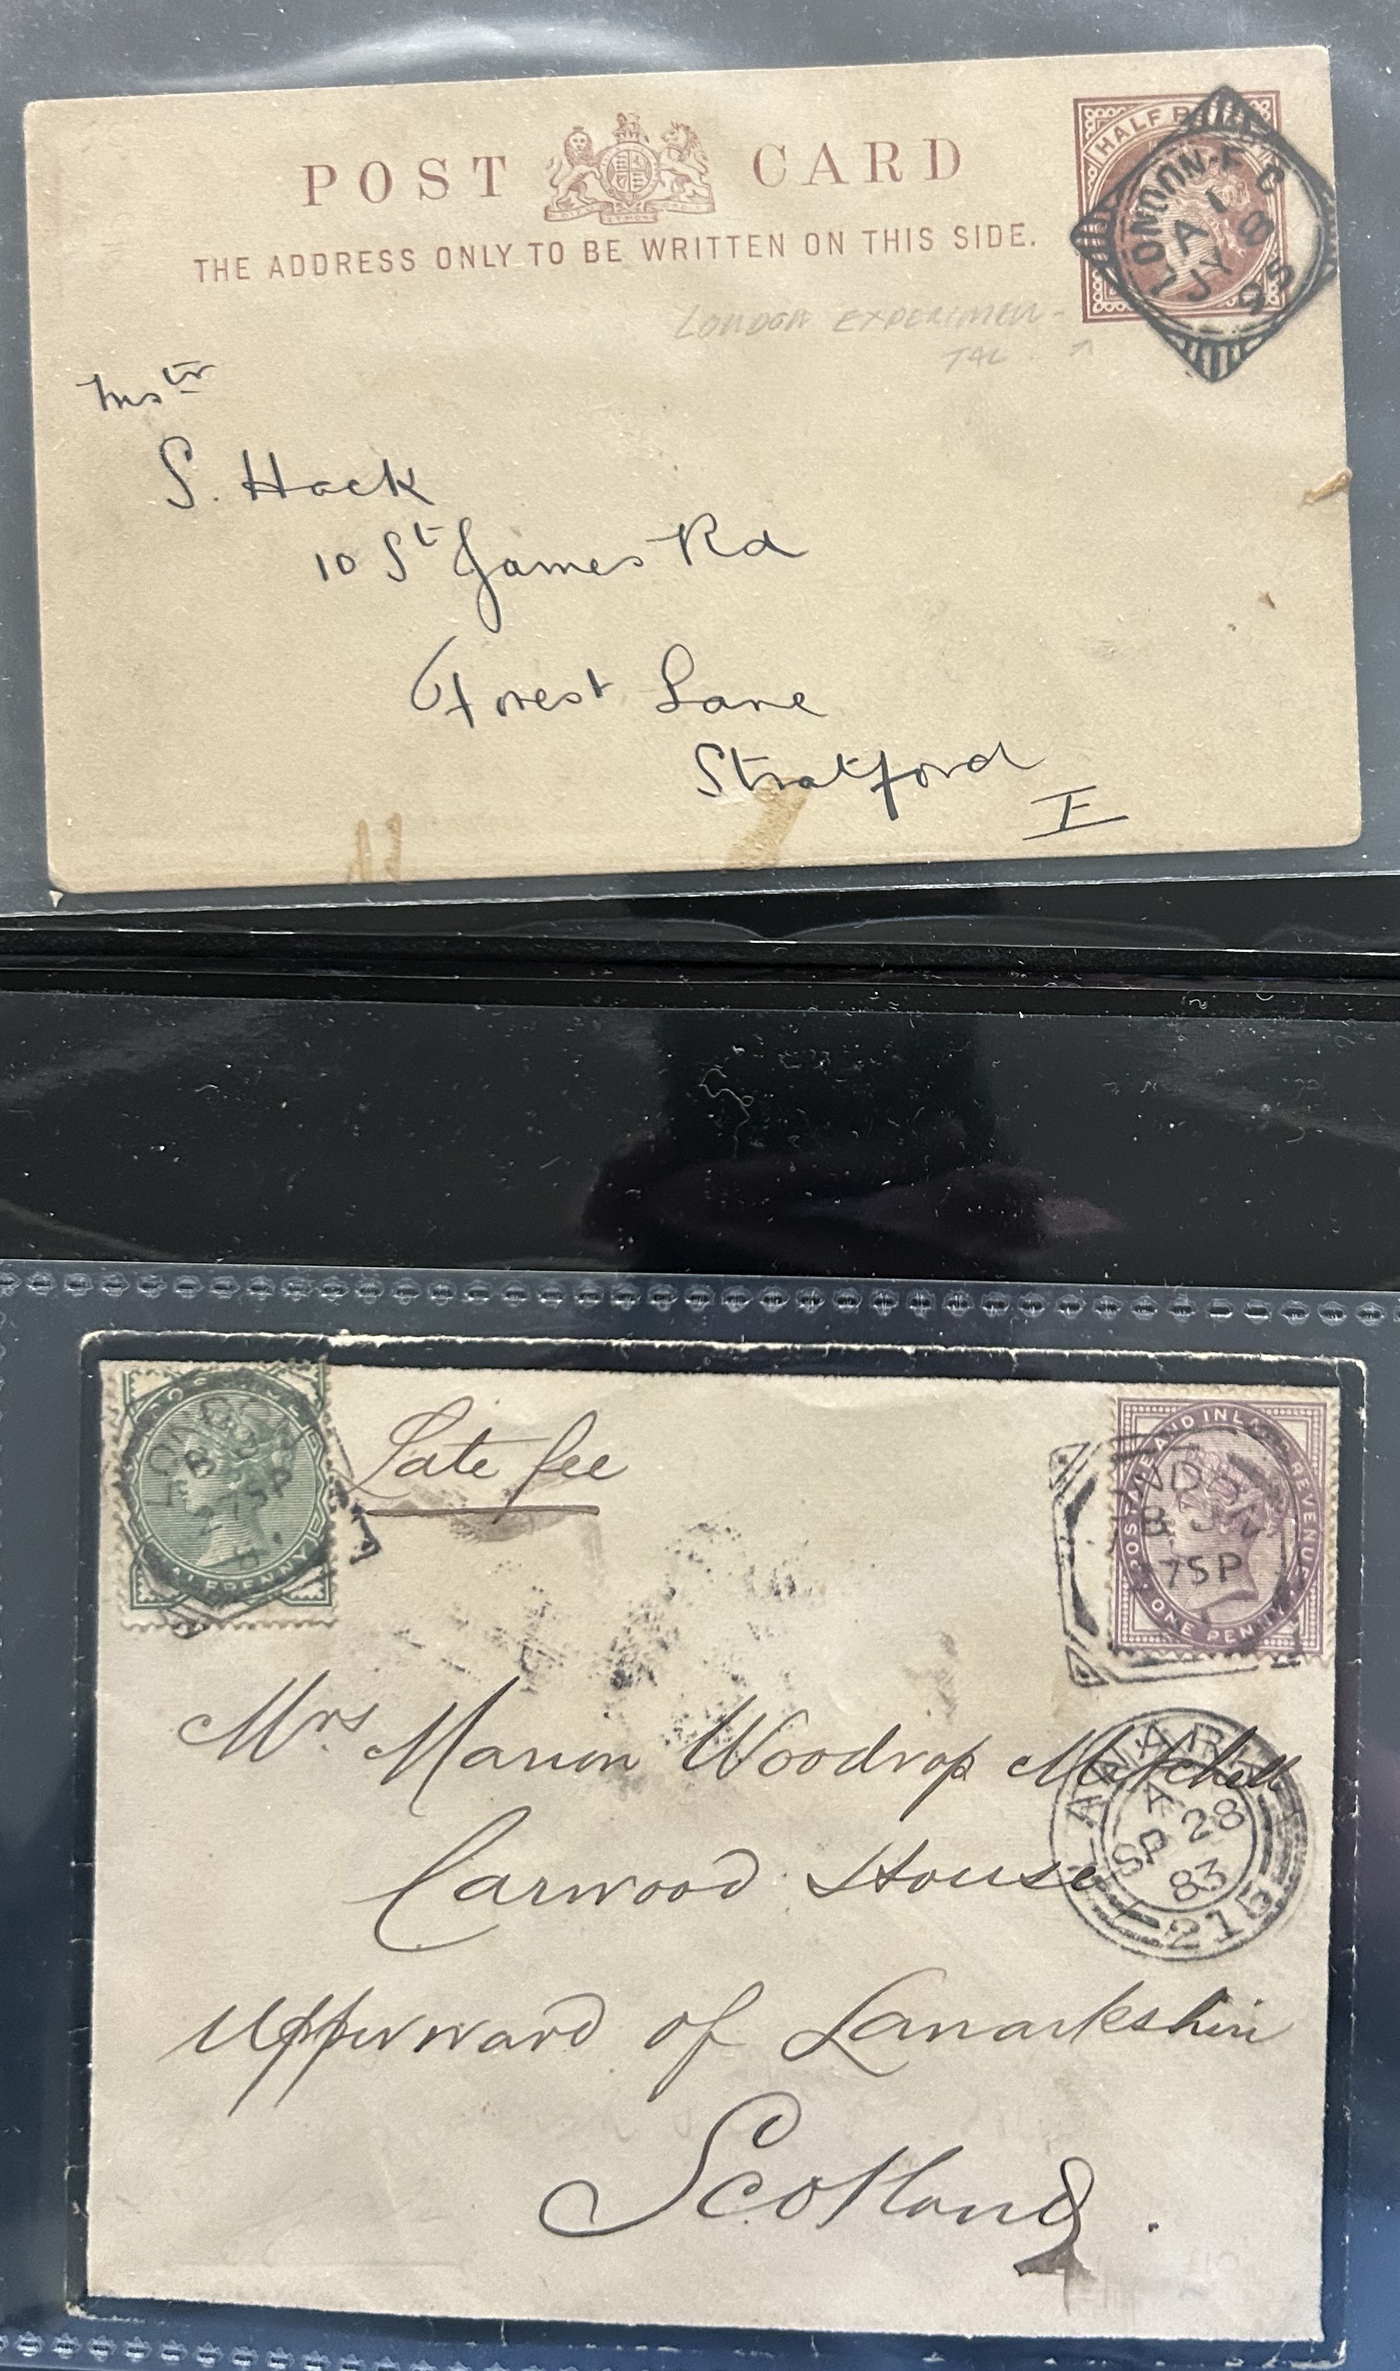 POST CARD
THE ADDRESS ONLY TO BE WRITTEN ON THIS SIDE.
HALF
LONDON. E C
A 1
JY 8
95
LONDON EXPERIMEN-
TAL
S. Hack
10 St James Rd
Forest Lane
Stratford
E
Late fee
POSTAGE AND INLAND REVENUE
ONE PENNY
HALFPENNY
7SP
Mrs Marion Woodrop Mitchell
LANARK
A
SP 28
83
215
Carwood House
Upperward of Lanarkshire
Scotland.